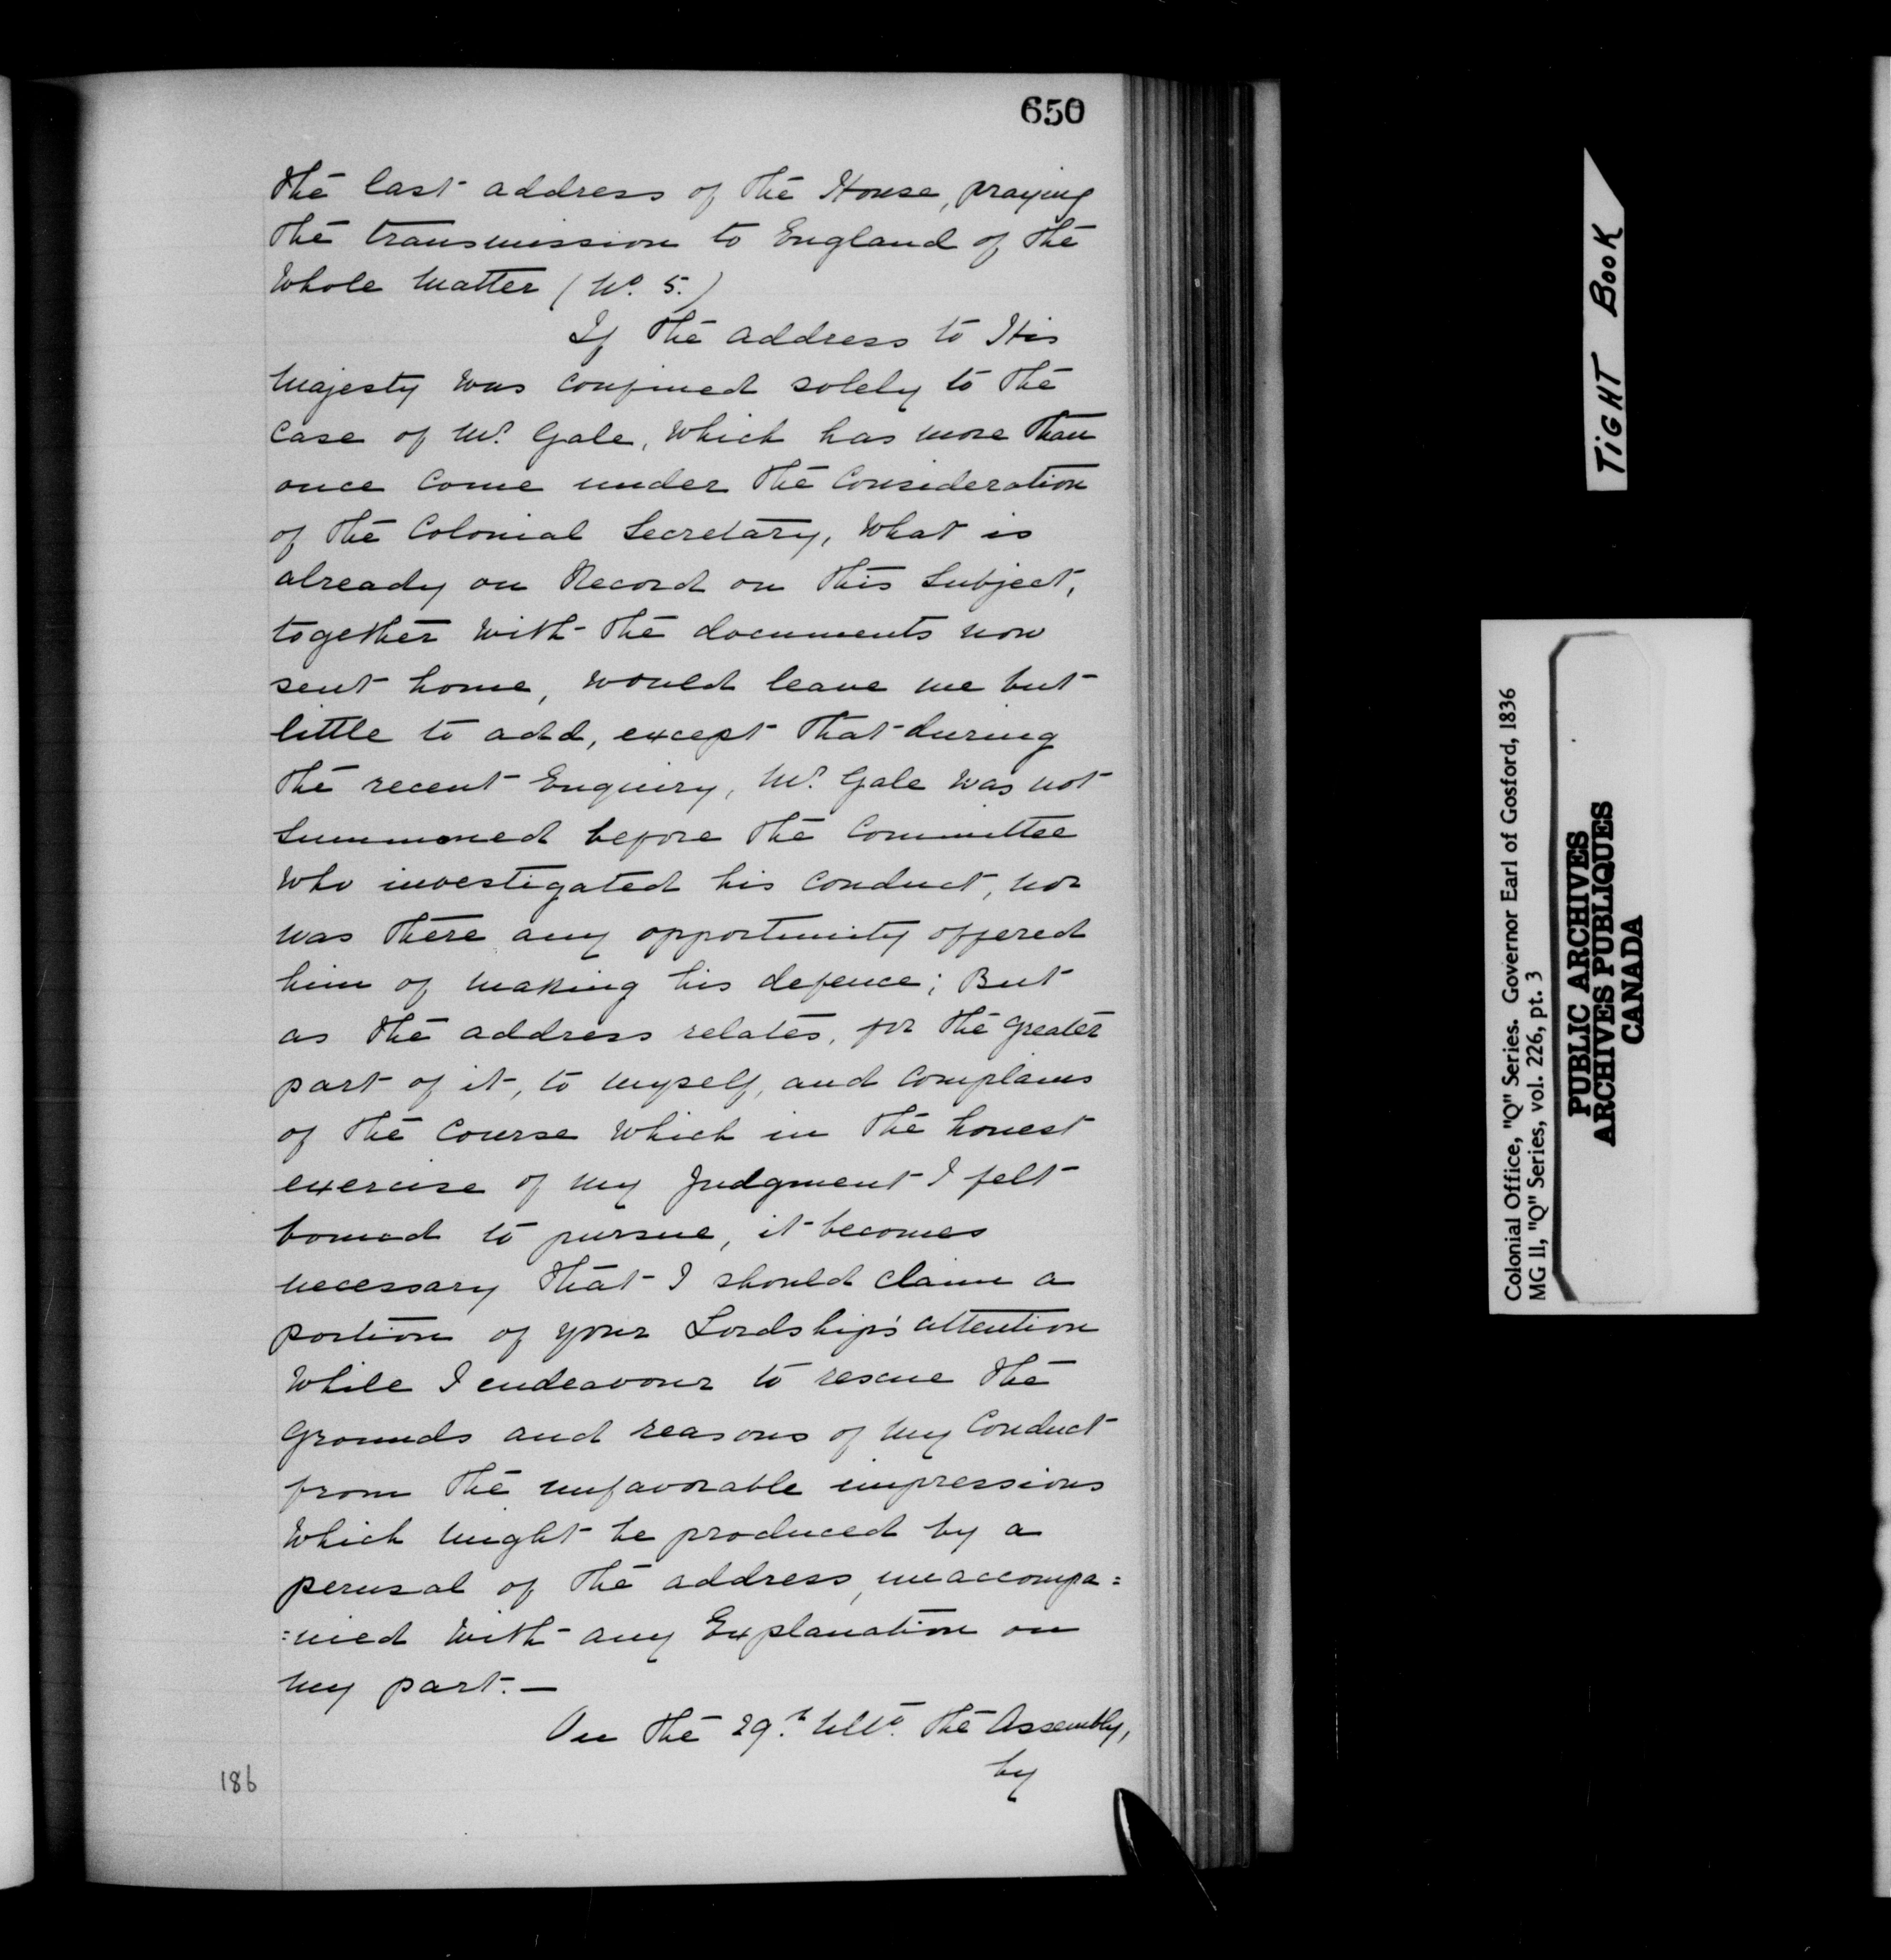 650
the last address of the House, praying
the transmission to England of the
whole matter (No. 5.)
If the address to His
Majesty was confined solely to the
case of Mr. Gale, which has more than
once come under the consideration
of the Colonial Secretary, what is
already on Record on this subject,
together with the documents now
sent home, would leave me but
little to add, except that during
the recent Enquiry, Mr. Gale was not
summoned before the Committee
who investigated his conduct, nor
was there any opportunity offered
him of making his defence; But
as the address relates, for the greater
part of it, to myself, and complains
of the course which in the honest
exercise of my Judgment I felt
bound to pursue, it becomes
necessary that I should claim a
portion of your Lordship's attention
while I endeavour to rescue the
grounds and reasons of my conduct
from the unfavorable impressions
which might be produced by a
perusal of the address, unaccompa=
=nied with any Explanation on
my part.—
On the 29th. Ulto. the Assembly,
by
186
TIGHT BOOK
Colonial Office, "Q" Series. Governor Earl of Gosford, 1836
MG 11, "Q" Series, vol. 226, pt. 3
PUBLIC ARCHIVES
ARCHIVES PUBLIQUES
CANADA